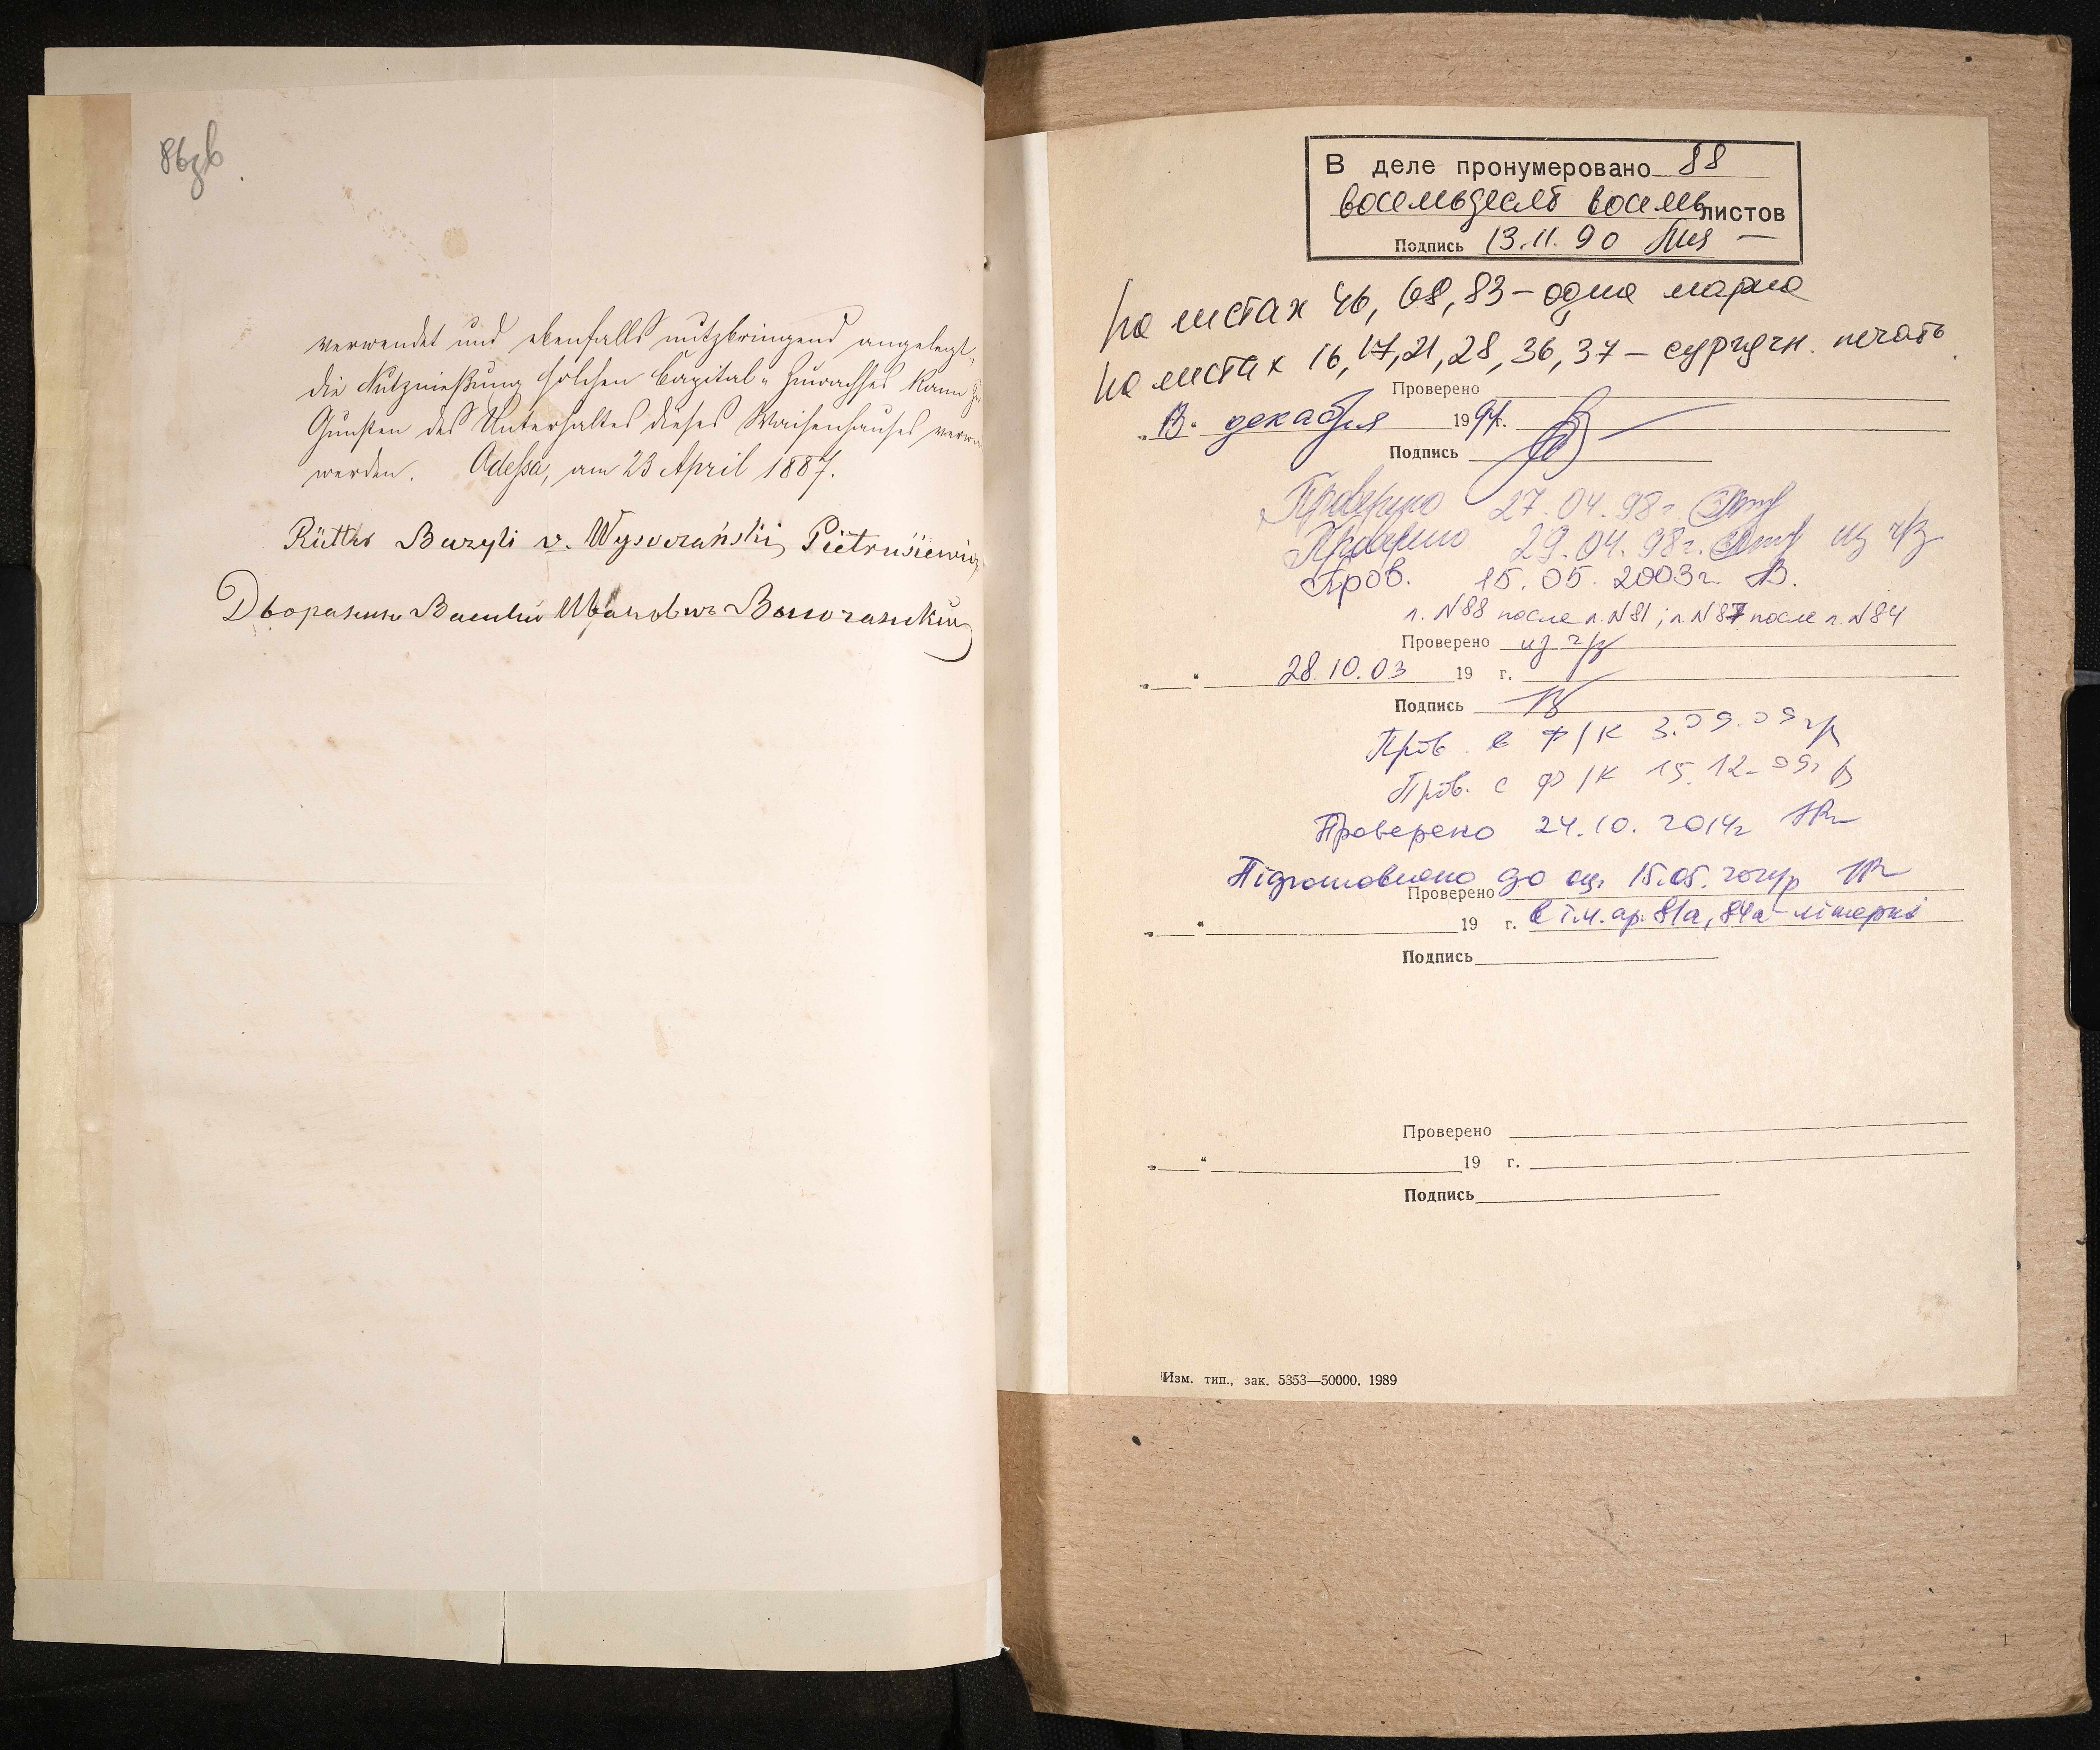 86зв
verwendet und ebenfalls nutzbringend angelegt,
die Nutznießung solchen Capital-Zuwachses kann
Gunsten des Unterhaltes dieses Waisenhauses
werden. Odessa, am 23 April 1887.
Bazyli v. Wysoczański Pietrusiewicz
Дворянинъ Василий Ивановичъ Височанский
В деле пронумеровано 88
восемьдесят восемь листов
Подпись 13.11.90
На листах 46, 68, 83 – одна марка
На листах 16, 17, 21, 28, 36, 37 – сургучн. печать
Проверено
„13“ декабря 1994 г.
Подпись
Проверено 27.04.98г.
Проверено 29.04.98г. из ч/з
Пров. 15.05.2003г.
л. N88 после л. N81; л. N87 после л. N84
Проверено из ч/з
„ “ 28.10.03 19 г.
Подпись
Пров. в Ф/К 3.09.09
Пров. с Ф/К 15.12.09
Проверено 24.10.2014г
Підготовлено до оц. 15.05.
Проверено
„ “ 19 г. в т.ч. ар. 81а, 84а – літерні
Подпись
Проверено
„ “ 19 г.
Подпись
Изм. тип., зак. 5353—50000. 1989